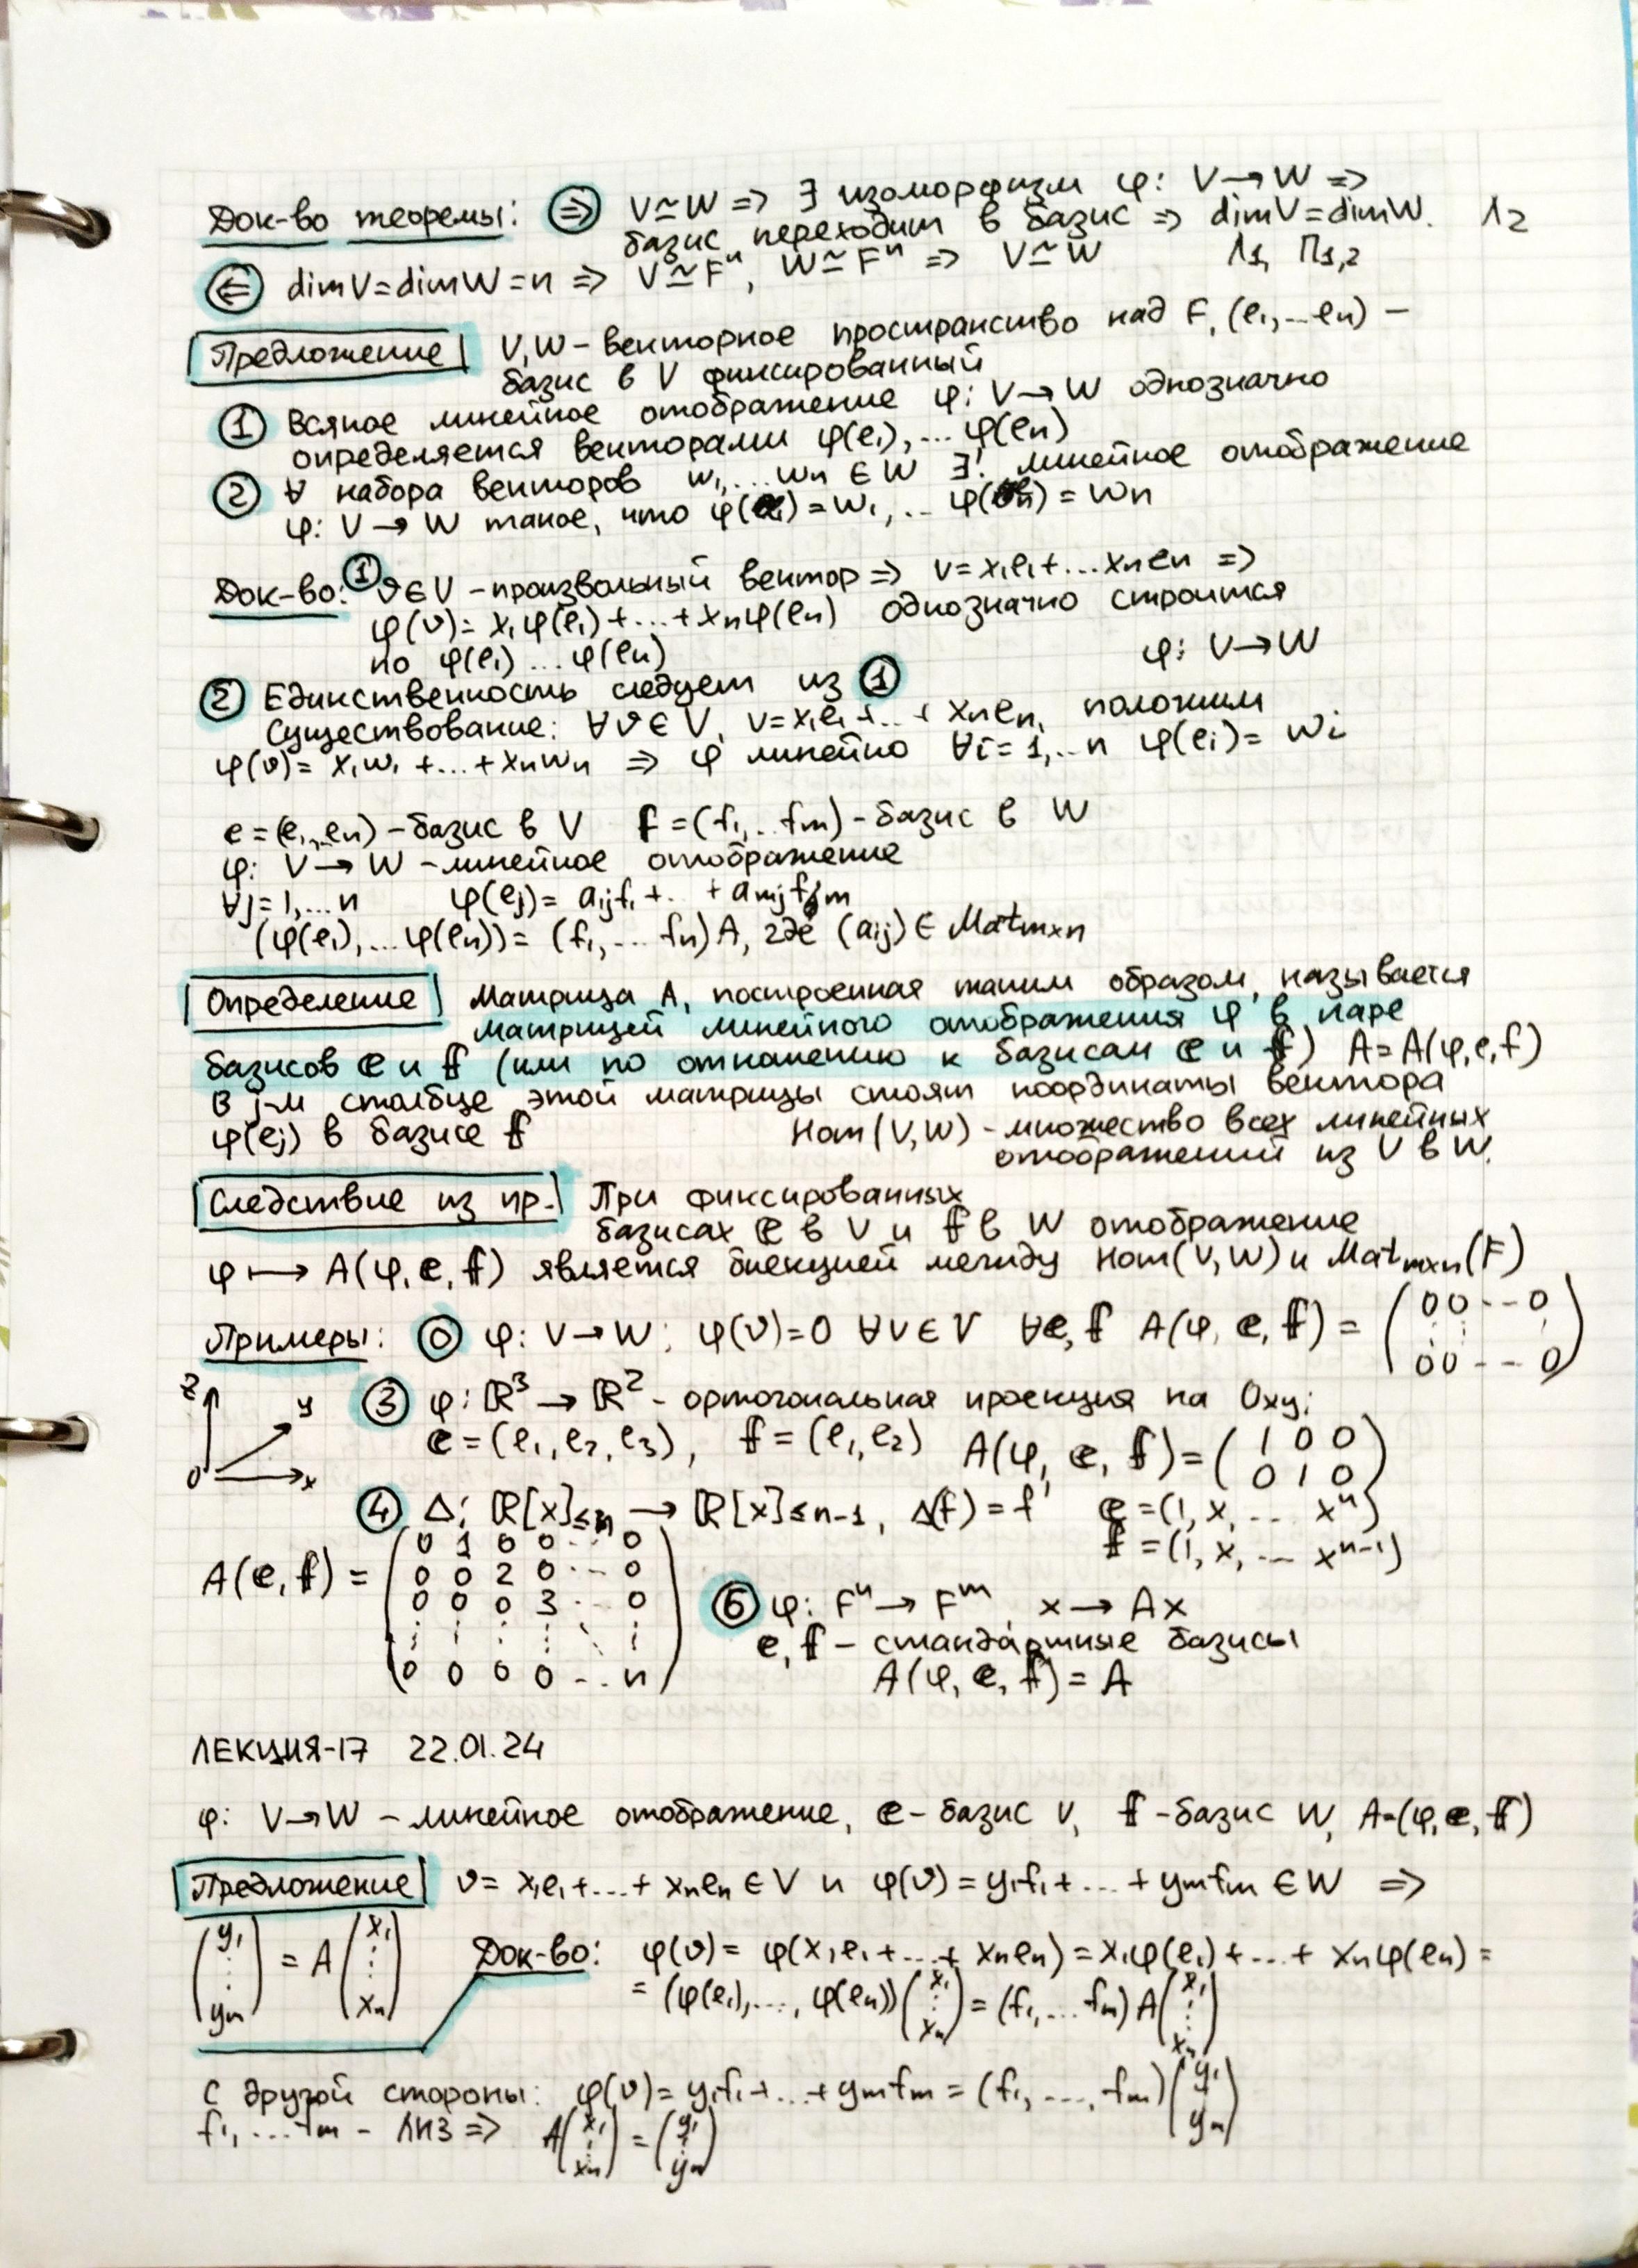 Док-во теоремы: ⇒ V≃W => ∃ изоморфизм φ: V→W =>
базис переходит в базис => dimV=dimW. Л2
⇐ dimV=dimW=n => V≃Fⁿ, W≃Fⁿ => V≃W Л1, П1,2
Предложение V,W – векторное пространство над F, (e₁,...eₙ) –
базис в V фиксированный
① Всякое линейное отображение φ: V→W однозначно
определяется векторами φ(e₁),... φ(eₙ)
② ∀ набора векторов w₁,...wₙ ∈ W ∃! линейное отображение
φ: V→W такое, что φ(e₁)=w₁,... φ(eₙ)=wₙ
Док-во: ① v∈V – произвольный вектор => v=x₁e₁+...xₙeₙ =>
φ(v)= x₁φ(e₁)+...+xₙφ(eₙ) однозначно строится
по φ(e₁)...φ(eₙ) φ: V→W
② Единственность следует из ①
Существование: ∀v∈V, v=x₁e₁+...+xₙeₙ, положим
φ(v)= x₁w₁+...+xₙwₙ => φ линейно ∀i=1,...n φ(eᵢ)= wᵢ
e=(e₁,..,eₙ) – базис в V f=(f₁,...fₘ) – базис в W
φ: V→W – линейное отображение
∀j=1,...n φ(eⱼ)= a₁ⱼf₁+...+aₘⱼfₘ
(φ(e₁),...φ(eₙ))=(f₁,...fₙ)A, где (aᵢⱼ)∈Matₘₓₙ
Определение Матрица A, построенная таким образом, называется
матрицей линейного отображения φ в паре
базисов e и f (или по отношению к базисам e и f) A=A(φ,e,f)
В j-м столбце этой матрицы стоят координаты вектора
φ(eⱼ) в базисе f Hom(V,W) – множество всех линейных
отображений из V в W.
Следствие из пр. При фиксированных
базисах e в V и f в W отображение
φ ↦ A(φ,e,f) является биекцией между Hom(V,W) и Matₘₓₙ(F)
Примеры: ⓪ φ: V→W; φ(v)=0 ∀v∈V ∀e,f A(φ,e,f) = (0 0 -- 0
⋮ ⋮ ⋮
0 0 -- 0)
z y x 0
③ φ: ℝ³→ℝ² – ортогональная проекция на Oxy;
e=(e₁,e₂,e₃), f=(e₁,e₂) A(φ,e,f)=(1 0 0
0 1 0)
④ Δ: ℝ[x]≤n → ℝ[x]≤n-1, Δ(f)=f' e=(1,x,...xⁿ)
f=(1,x,...xⁿ⁻¹)
A(e,f) = (0 1 0 0 ... 0
0 0 2 0 ... 0
0 0 0 3 ... 0
⋮ ⋮ ⋮ ⋮ ⋱ ⋮
0 0 0 0 ... n)
⑥ φ: Fⁿ→Fᵐ, x→Ax
e,f – стандартные базисы
A(φ,e,f)=A
ЛЕКЦИЯ-17 22.01.24
φ: V→W – линейное отображение, e – базис V, f – базис W, A=(φ,e,f)
Предложение v= x₁e₁+...+xₙeₙ∈V и φ(v)=y₁f₁+...+yₘfₘ∈W =>
(y₁ ⋮ yₘ) = A (x₁ ⋮ xₙ)
Док-во: φ(v)= φ(x₁e₁+...+xₙeₙ)=x₁φ(e₁)+...+xₙφ(eₙ)=
= (φ(e₁),...,φ(eₙ))(x₁ ⋮ xₙ)=(f₁,...fₘ)A(x₁ ⋮ xₙ)
С другой стороны: φ(v)=y₁f₁+...+yₘfₘ=(f₁,...,fₘ)(y₁ ⋮ yₘ)
f₁,...fₘ – ЛНЗ => A(x₁ ⋮ xₙ)=(y₁ ⋮ yₘ)